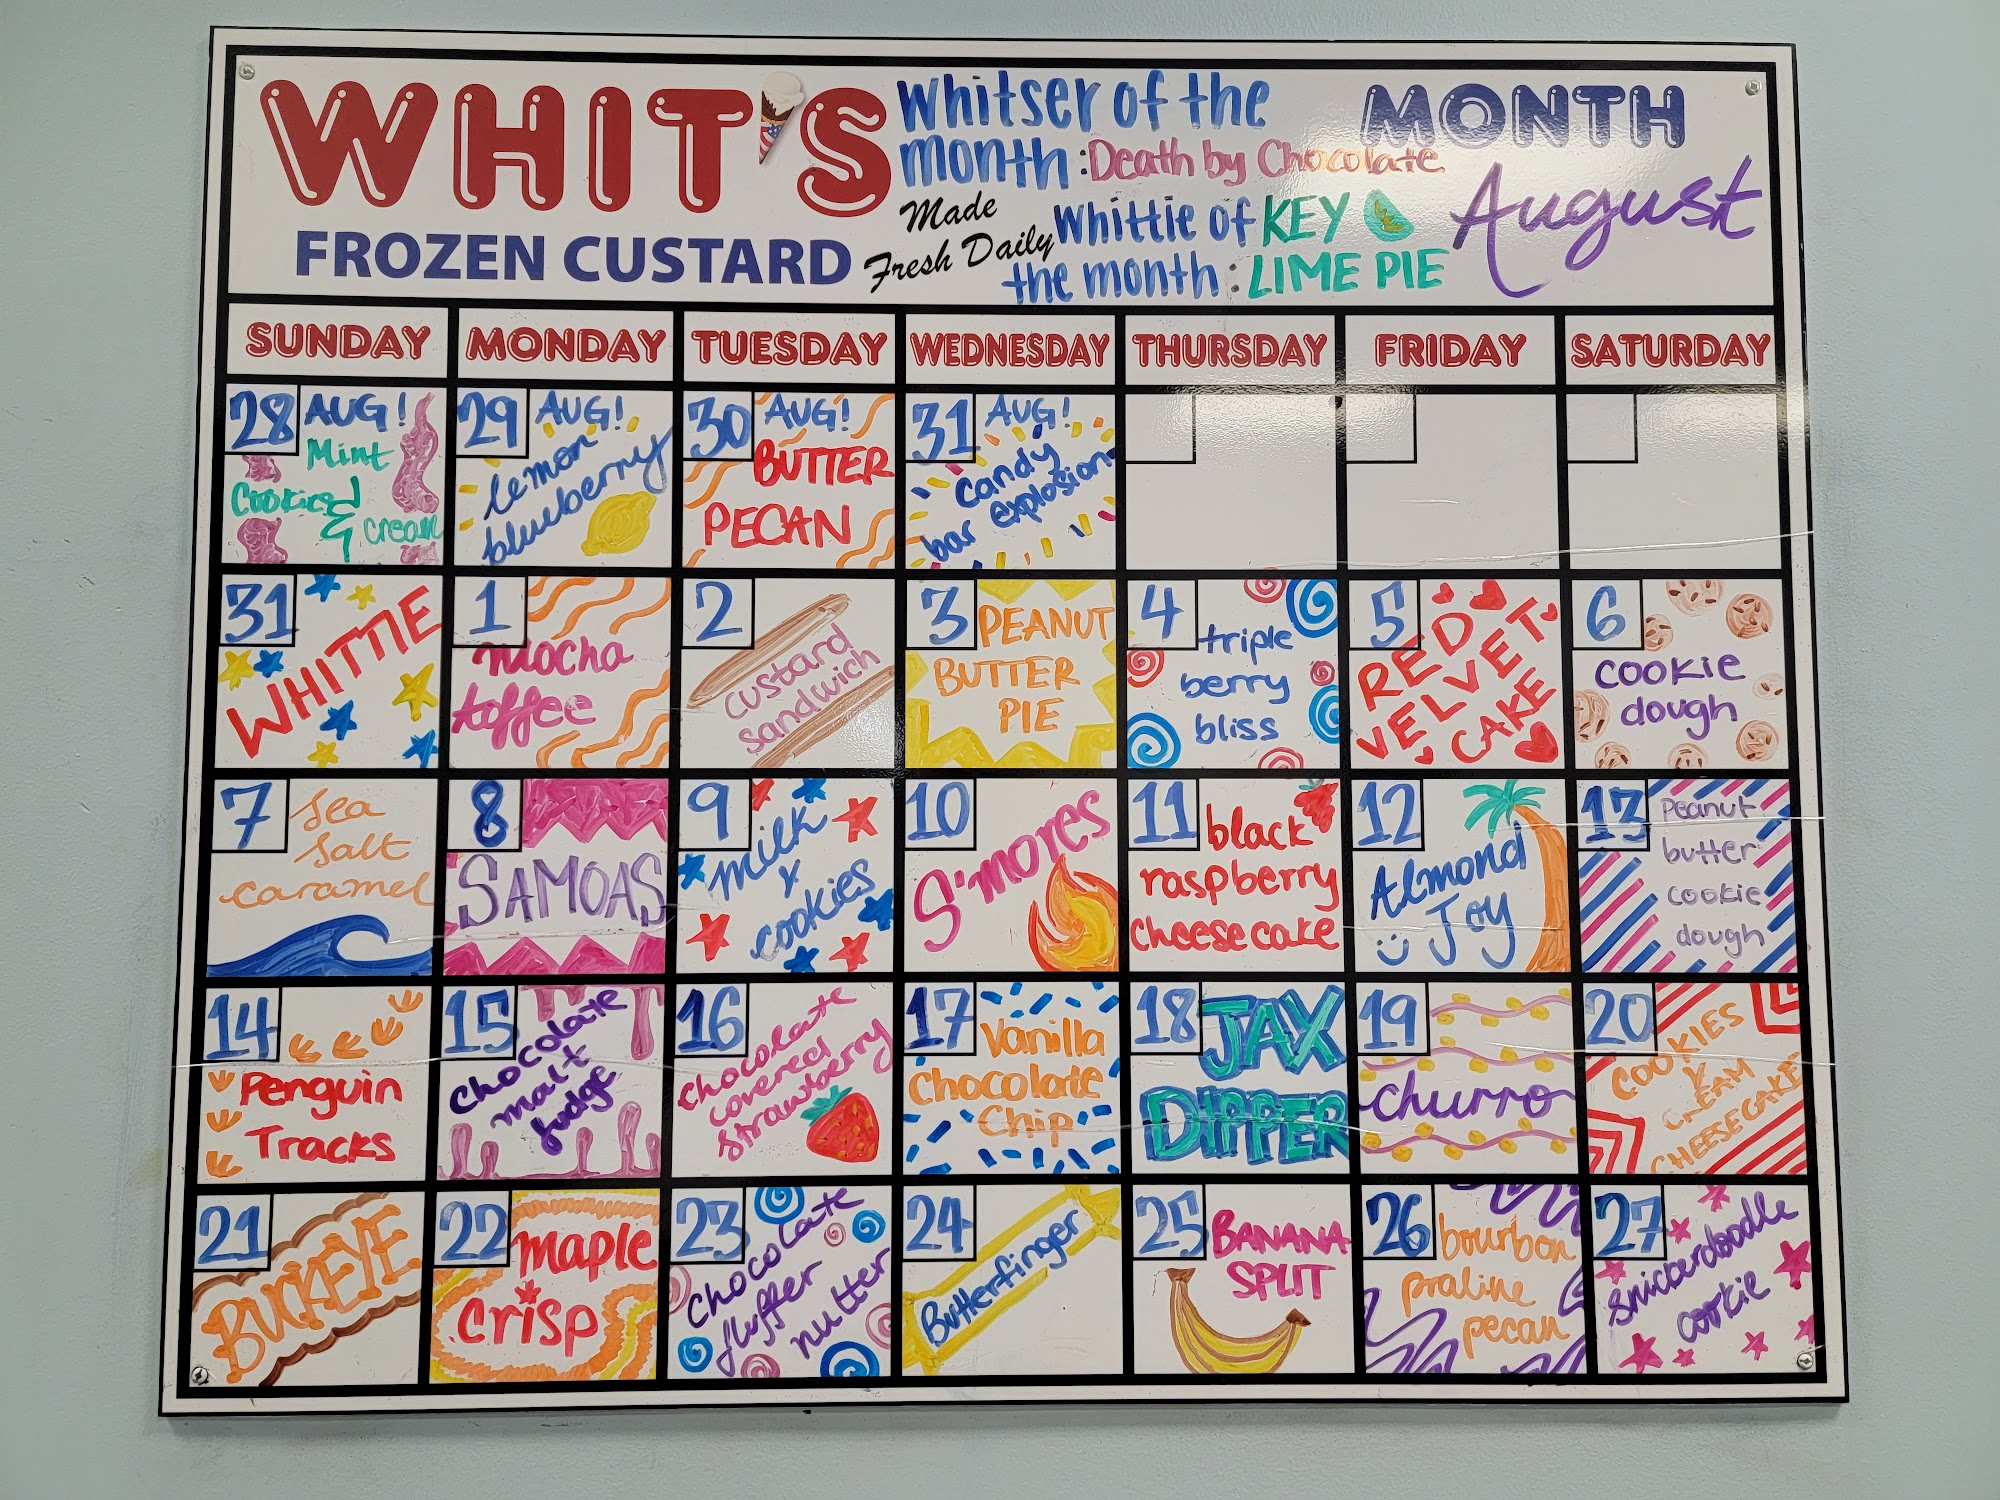 WHIT'S
FROZEN CUSTARD
Made
Fresh Daily
Whitser of the
month: Death by Chocolate
Whittie of KEY
the month: LIME PIE
MONTH
August
SUNDAY MONDAY TUESDAY WEDNESDAY THURSDAY FRIDAY SATURDAY
28 AUG!
Mint
Cookies
& cream
29 AUG!
lemon
blueberry
30 AUG!
BUTTER
PECAN
31 AUG!
candy
bar explosion
31
WHITTIE
1
mocha
toffee
2
custard
sandwich
3 PEANUT
BUTTER
PIE
4
triple
berry
bliss
5
RED
VELVET
CAKE
6
cookie
dough
7 sea
salt
caramel
8
SAMOAS
9
milk
&
cookies
10
S'mores
11
black
raspberry
cheesecake
12
Almond
Joy
13 Peanut
butter
cookie
dough
14
Penguin
Tracks
15
chocolate
malt
fudge
16
chocolate
covered
strawberry
17
Vanilla
Chocolate
Chip
18 JAX
DIPPER
19
churro
20
COOKIES
&
CREAM
CHEESECAKE
21
BUCKEYE
22
maple
crisp
23
chocolate
fluffer
nutter
24
Butterfinger
25
BANANA
SPLIT
26
bourbon
praline
pecan
27
snickerdoodle
cookie